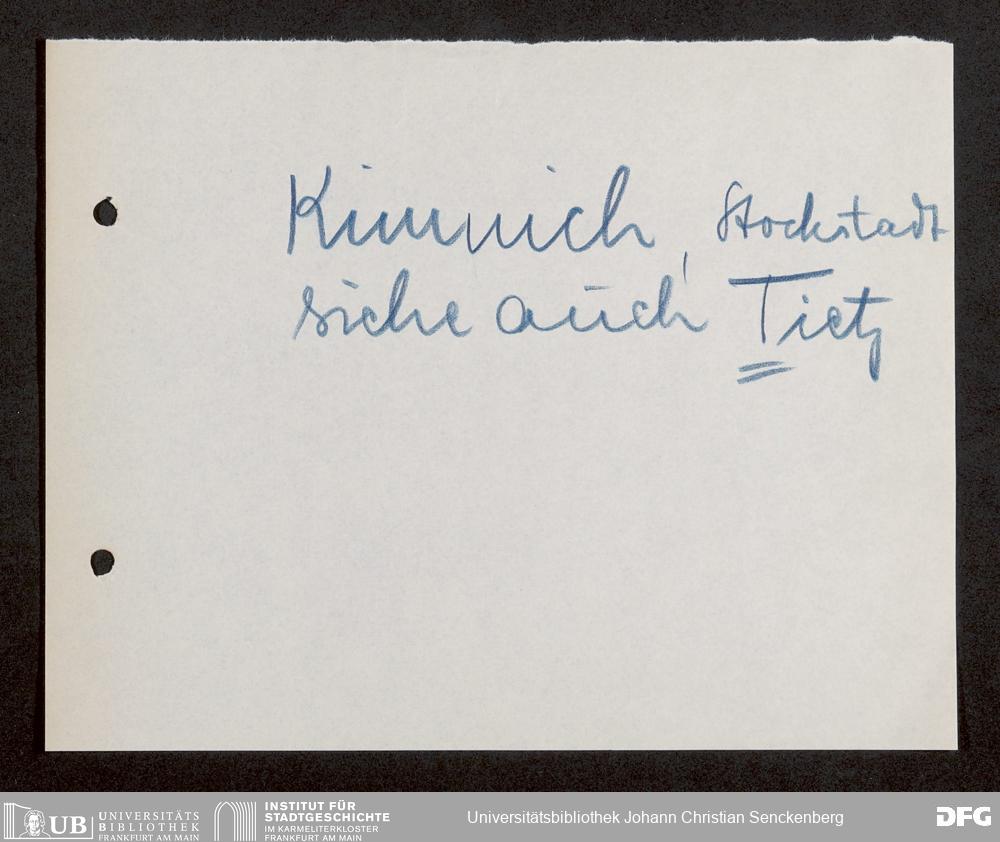 Kimmich, Stockstadt
siehe auch Tietz
UB UNIVERSITÄTS
BIBLIOTHEK
FRANKFURT AM MAIN
INSTITUT FÜR
STADTGESCHICHTE
IM KARMELITERKLOSTER
FRANKFURT AM MAIN
Universitätsbibliothek Johann Christian Senckenberg
DFG